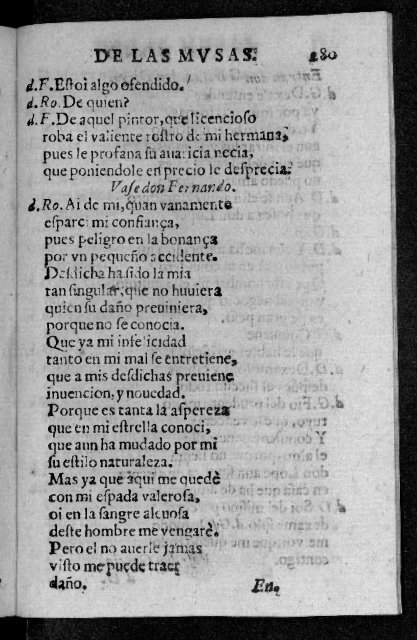 DE LAS MVSAS. 280
d.F. Estoi algo ofendido.
d.Ro. De quien?
d.F. De aquel pintor, que licencioso
roba el valiente rostro de mi hermana,
pues le profana su auaricia necia,
que poniendole en precio le desprecia.
Vase don Fernando.
d.Ro. Ai de mi, quan vanamente
esparci mi confiança,
pues peligro en la bonança
por vn pequeño accidente.
Desdicha ha sido la mia
tan singular, que no huuiera
quien su daño preuiniera,
porque no se conocia.
Que ya mi infelicidad
tanto en mi mal se entretiene,
que a mis desdichas preuiene
inuencion, y nouedad.
Porque es tanta la aspereza
que en mi estrella conoci,
que aun ha mudado por mi
su estilo naturaleza.
Mas ya que aqui me quedè
con mi espada valerosa,
oi en la sangre aleuosa
deste hombre me vengarè.
Pero el no auerle jamas
visto me puede traer
daño. En-